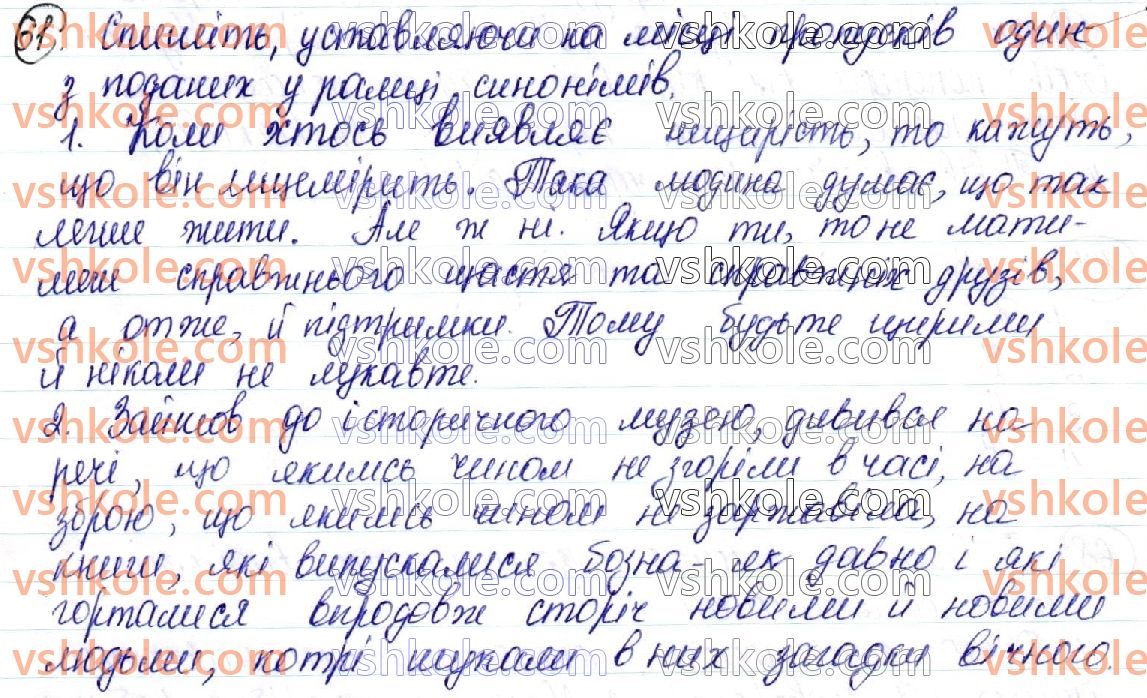 61. Спишіть, уставляючи на місці пропусків один
з поданих у рамці синонімів.
1. Коли хтось виявляє нещирість, то кажуть,
що він лицемірить. Така людина думає, що так
легше жити. Але ж ні. Якщо ти, то не мати-
меш справжнього щастя та справжніх друзів,
а отже, й підтримки. Тому будьте щирими
й ніколи не лукавте.
2. Зайшов до історичного музею, дивився на
речі, що якимсь чином не згоріли в часі, на
зброю, що якимсь чином не заржавіла, на
книги, які випускалися бозна-як давно і які
горталися впродовж сторіч новими й новими
людьми, котрі шукали в них загадки вічного.
vshkole.com